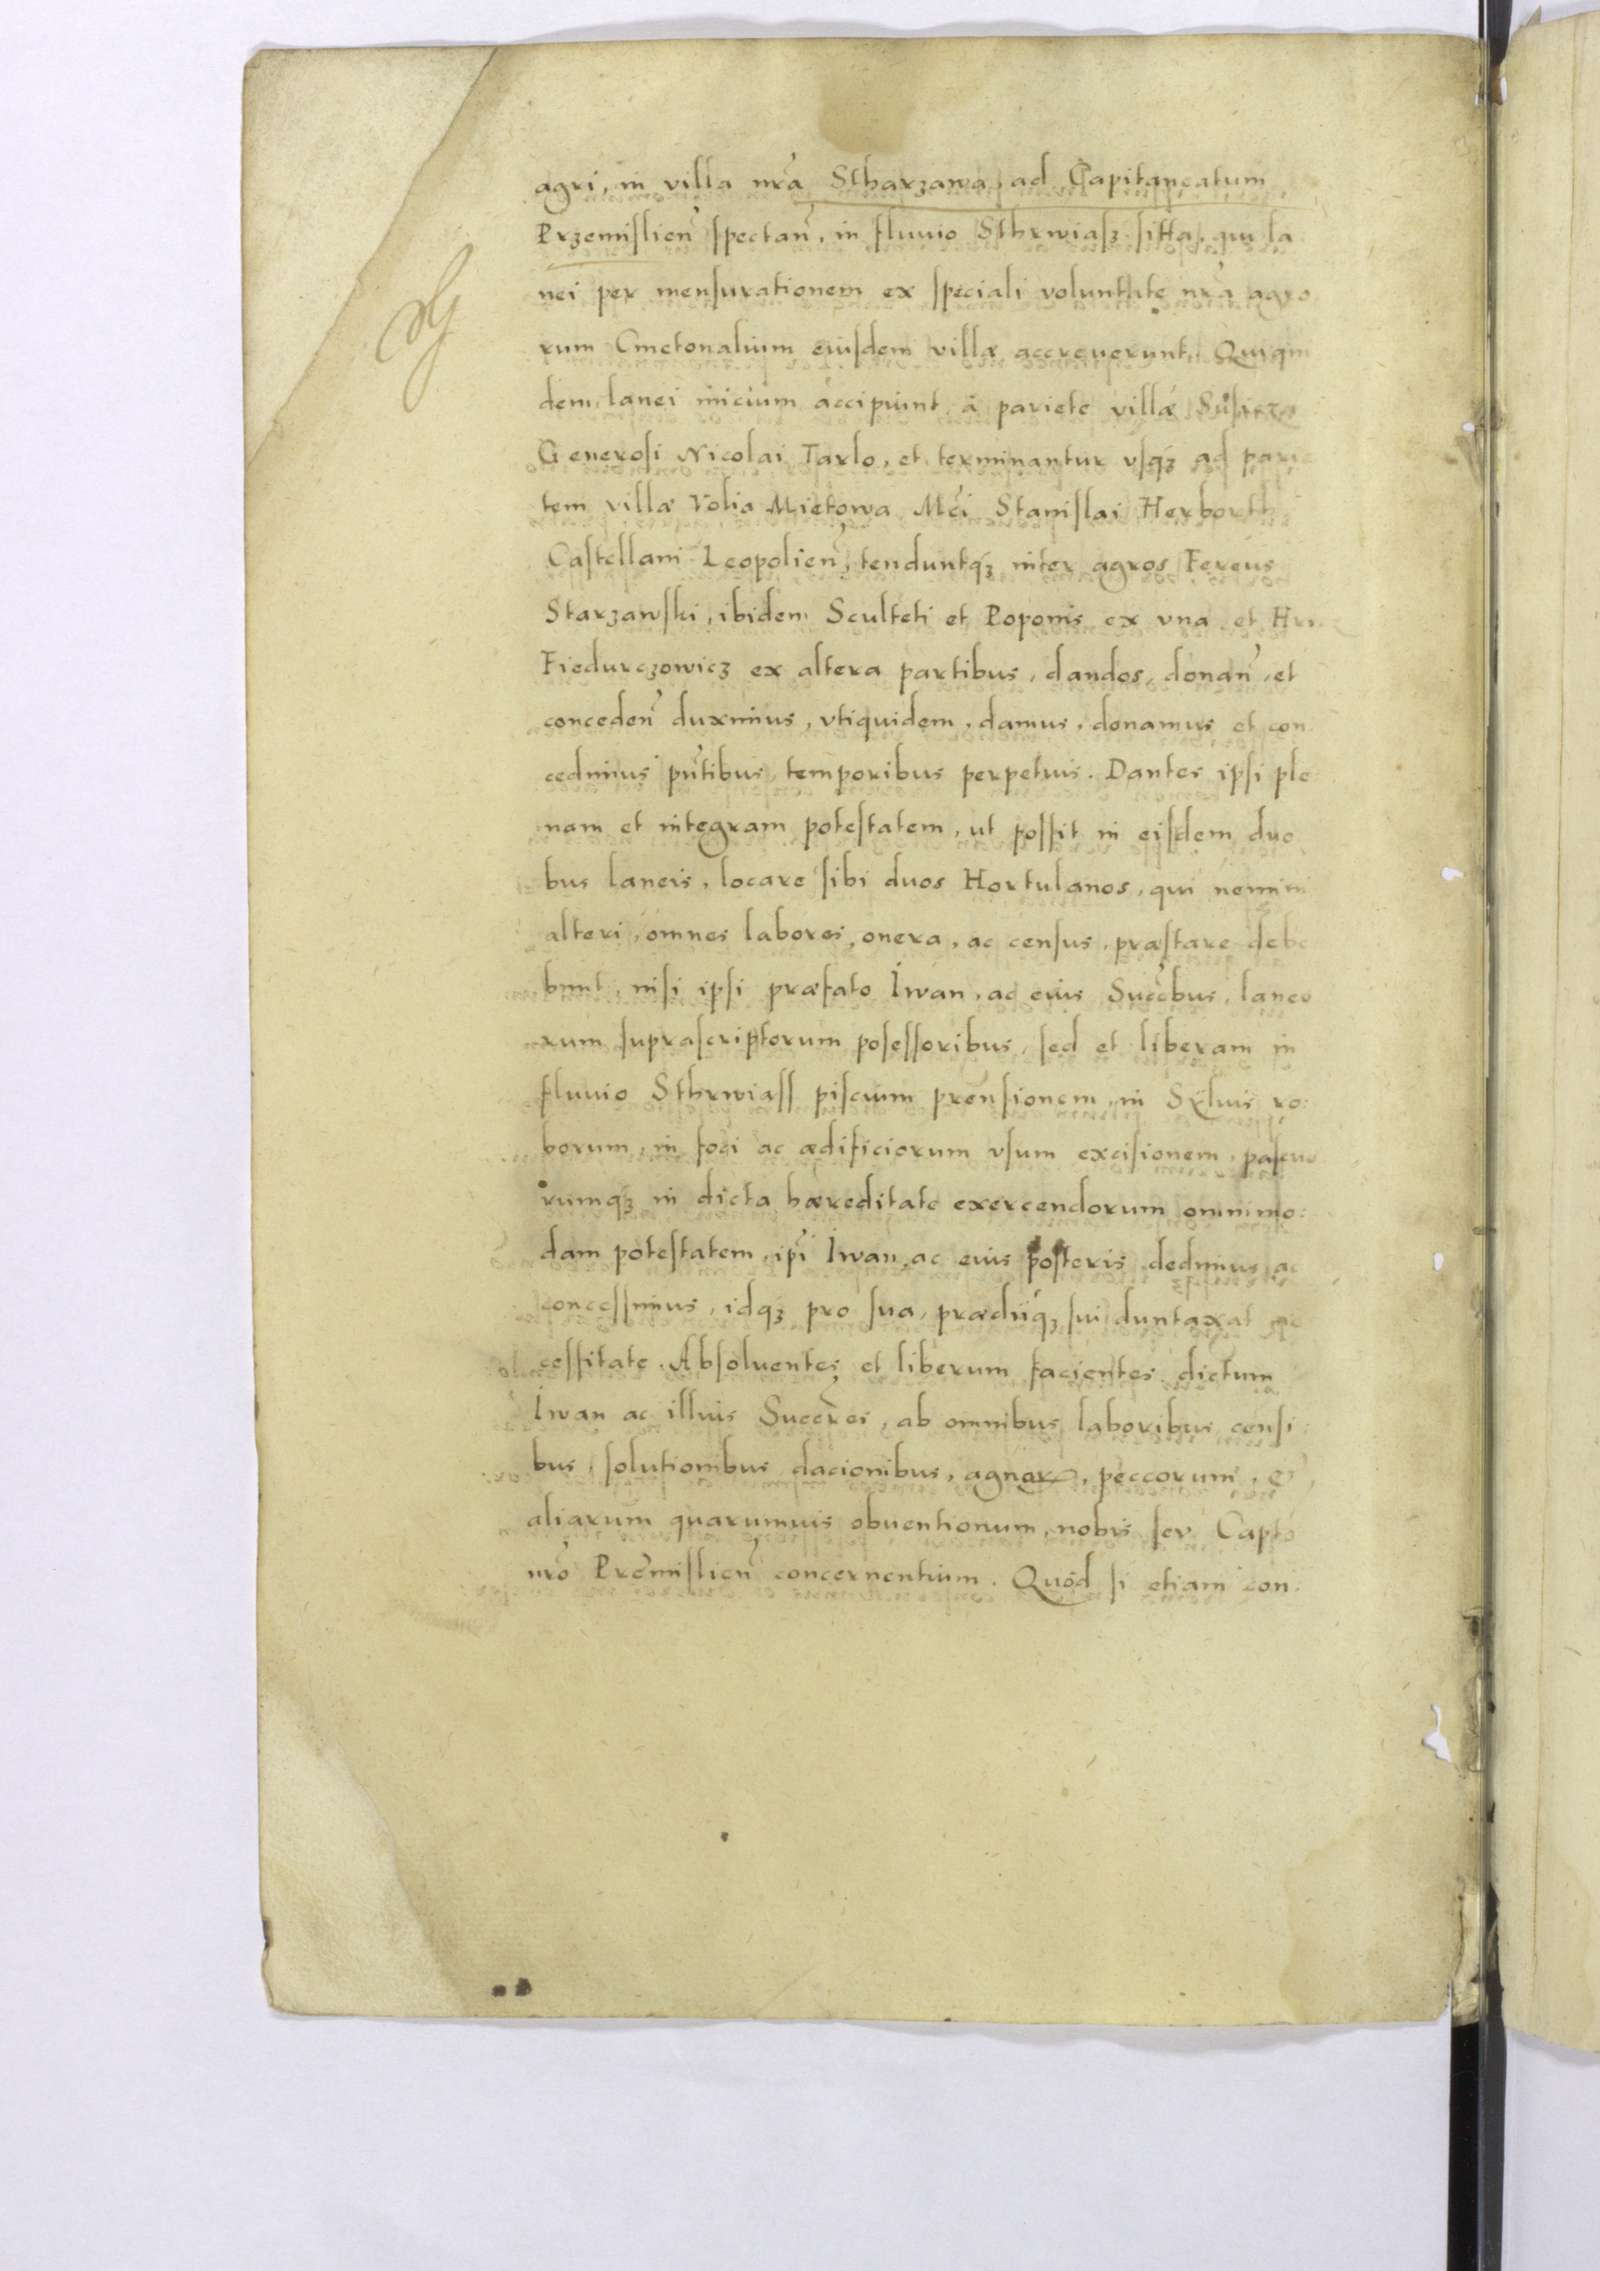 agri, in villa nr̃a Stharzawa, ad Capitaneatum
Przemislien̄ spectan̄, in fluuio Sthrwiasz sitta, qui la
nei per mensurationem ex speciali voluntate nr̃a agro
rum Cmetonalium eiusdem villæ accreuerunt. Quiqui
dem lanei inicium accipiunt à pariete villæ
Generosi Nicolai Tarlo, et terminantur vsq; ad parie
tem villæ Volia Mietowa Mci Stanislai Herborth
Castellani Leopolien̄, tenduntq; inter agros Fereus
Starzawski, ibidem Sculteti et Poponis ex vna et
Fiedurczowicz ex altera partibus, dandos, donan̄, et
conceden̄ duximus, vtiquidem, damus, donamus et con
cedimus pñtibus, temporibus perpetuis. Dantes ipsi ple
nam et integram potestatem, ut possit in eisdem duo
bus laneis, locare sibi duos Hortulanos, qui nemini
alteri, omnes labores, onera, ac census, præstare debe
bunt, nisi ipsi præfato Iwan, ac eius Succ̃bus, laneo
rum suprascriptorum posessoribus, sed et liberam in
fluuio Sthrwiass piscium prensionem, in Syluis ro:
borum, in foci ac ædificiorum vsum excisionem, pascuo
rumq; in dicta hæreditate exercendorum omnimo:
dam potestatem, ip̃i Iwan, ac eius posteris dedimus ac
concessimus, idq; pro sua, prædiiq; sui duntaxat ne
cessitate. Absoluentes et liberum facientes dictum
Iwan ac illius Succr̃es, ab omnibus laboribus censi:
bus, solutionibus dacionibus, agnor, peccorum, &
aliarum quarumuis obuentionum, nobis seu Capto
nr̃o Premislien̄ concernentium. Quòd si etiam con: